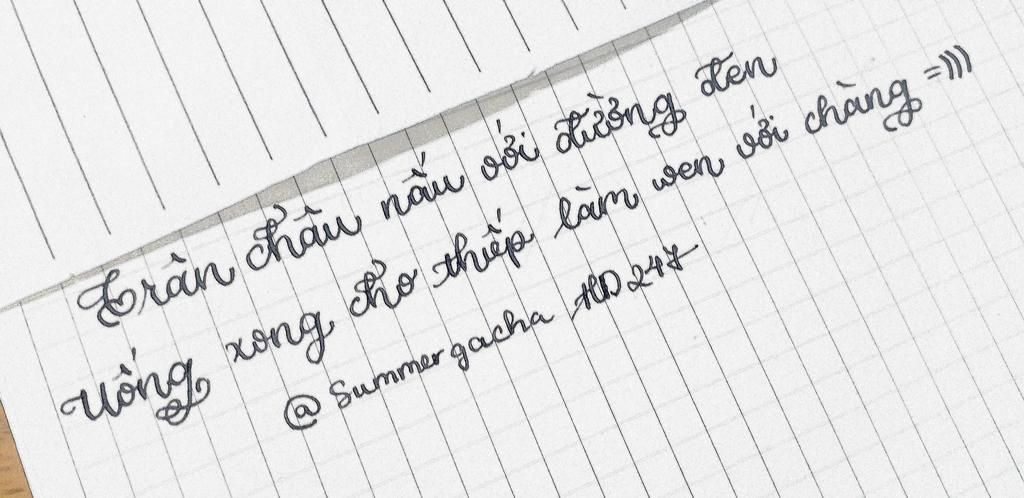 Trân châu nấu với đường đen
Uống xong cho thiếp làm wen với chàng =)))
@ Summer gacha HD247